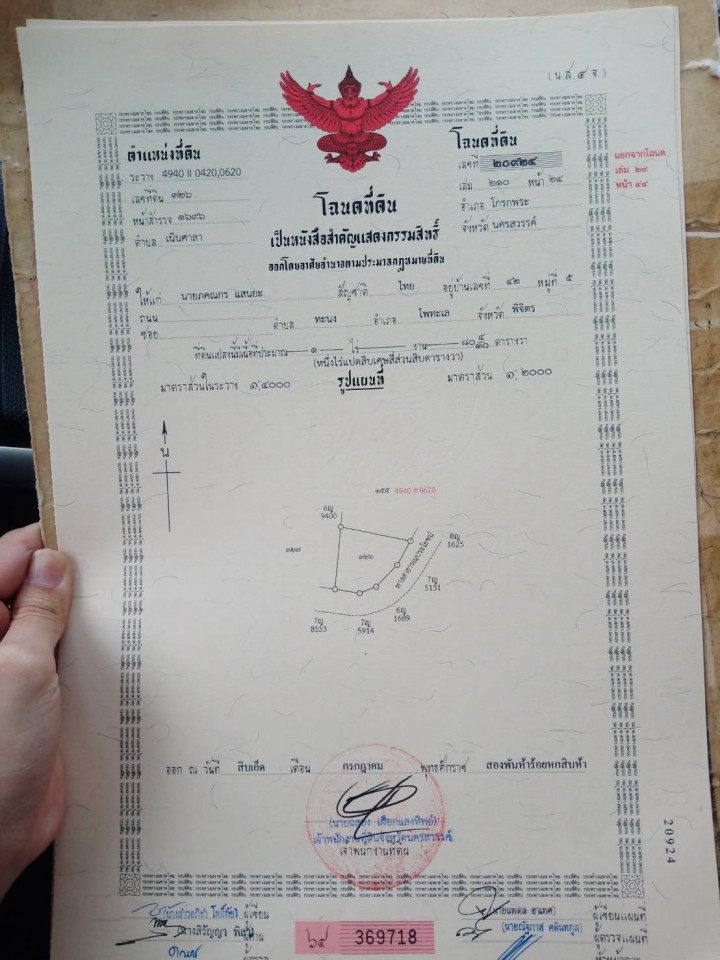 (น.ส. ๔ จ.)
ตำแหน่งที่ดิน
ระวาง 4940 II 0420,0620
เลขที่ดิน ๓๒๖
หน้าสำรวจ ๑๖๙๖
ตำบล เนินศาลา
โฉนดที่ดิน
เลขที่ ๒๐๙๒๔
เล่ม ๒๑๐ หน้า ๒๔
อำเภอ โกรกพระ
จังหวัด นครสวรรค์
แยกจากโฉนด
เล่ม ๒๙
หน้า ๔๔
โฉนดที่ดิน
เป็นหนังสือสำคัญแสดงกรรมสิทธิ์
ออกโดยอาศัยอำนาจตามประมวลกฎหมายที่ดิน
ให้แก่ นายภคณกร แสนยะ สัญชาติ ไทย อยู่บ้านเลขที่ ๔๒ หมู่ที่ ๕
ถนน
ซอย ตำบล ทะนง อำเภอ โพทะเล จังหวัด พิจิตร
ที่ดินแปลงนี้มีเนื้อที่ประมาณ ๑ ไร่ - งาน ๘๐ ๔/๑๐ ตารางวา
(หนึ่งไร่แปดสิบเศษสี่ส่วนสิบตารางวา)
มาตราส่วนในระวาง ๑:๔๐๐๐ รูปแผนที่ มาตราส่วน ๑: ๒๐๐๐
น
๑๕๕ 4940 II 0620
6ญ
9400
๑๒๗
ทางสาธารณประโยชน์
8ญ
1625
7ญ
5131
6ญ
1689
7ญ
8553
7ญ
5914
ออก ณ วันที่ สิบเอ็ด เดือน กรกฎาคม พุทธศักราช สองพันห้าร้อยหกสิบห้า
เจ้าพนักงานที่ดินจังหวัดนครสวรรค์
เจ้าพนักงานที่ดิน
20924
ผู้เขียน
ผู้เขียนแผนที่
นางสิรัญญา
ผู้ตรวจแผนที่
369718